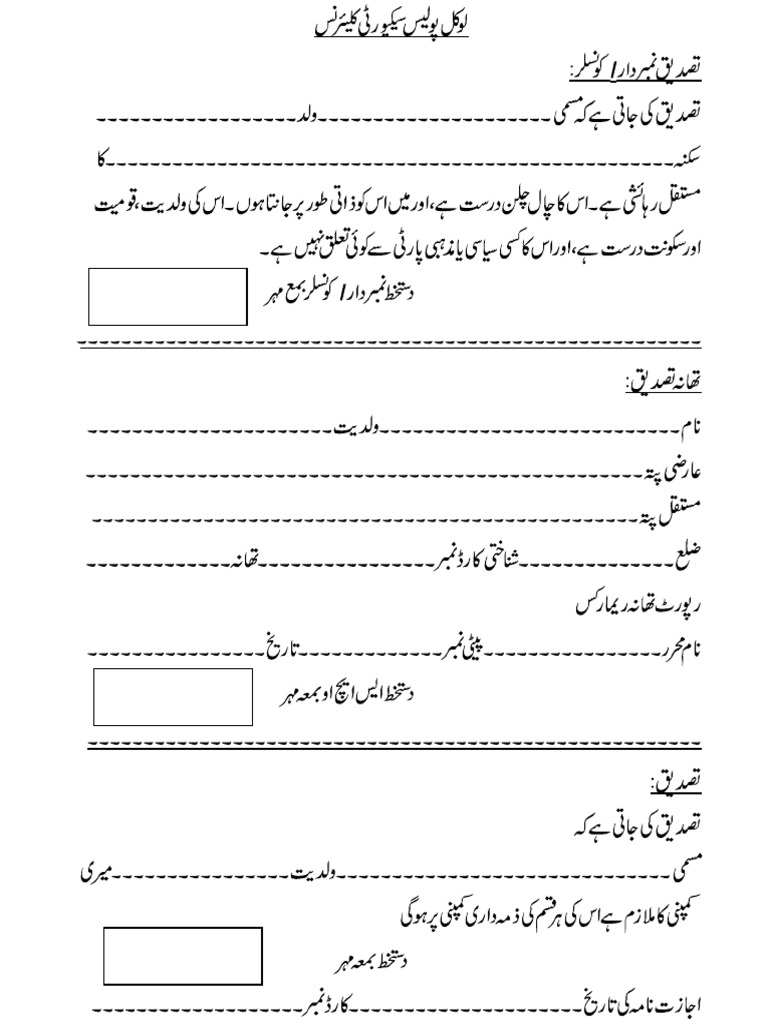 لوکل پولیس سیکیورٹی کلیئرنس
تصدیق نمبردار/ کونسلر:
تصدیق کی جاتی ہے کہ مسمی ---------------------ولد------------------
سکنہ---------------------------------------------------کا
مستقل رہائشی ہے۔ اس کا چال چلن درست ہے، اور میں اس کو ذاتی طور پر جانتا ہوں۔ اس کی ولدیت، قومیت
اور سکونت درست ہے، اور اس کا کسی سیاسی یا مذہبی پارٹی سے کوئی تعلق نہیں ہے۔
دستخط نمبردار/ کونسلر بمع مہر
--------------------------------------------------------
تھانہ تصدیق:
نام---------------------------ولدیت----------------------
عارضی پتہ--------------------------------------------------
مستقل پتہ-------------------------------------------------
ضلع--------------شناختی کارڈ نمبر----------------تھانہ-------------
رپورٹ تھانہ ریمارکس
نام محرر----------------پیٹی نمبر-------------تاریخ----------------
دستخط ایس ایچ او بمعہ مہر
-------------------------------------------------------
تصدیق:
تصدیق کی جاتی ہے کہ
مسمی ------------------------------ولدیت----------------میری
کمپنی کا ملازم ہے اس کی ہر قسم کی ذمہ داری کمپنی پر ہوگی
دستخط بمعہ مہر
اجازت نامہ کی تاریخ---------------------کارڈ نمبر-------------------